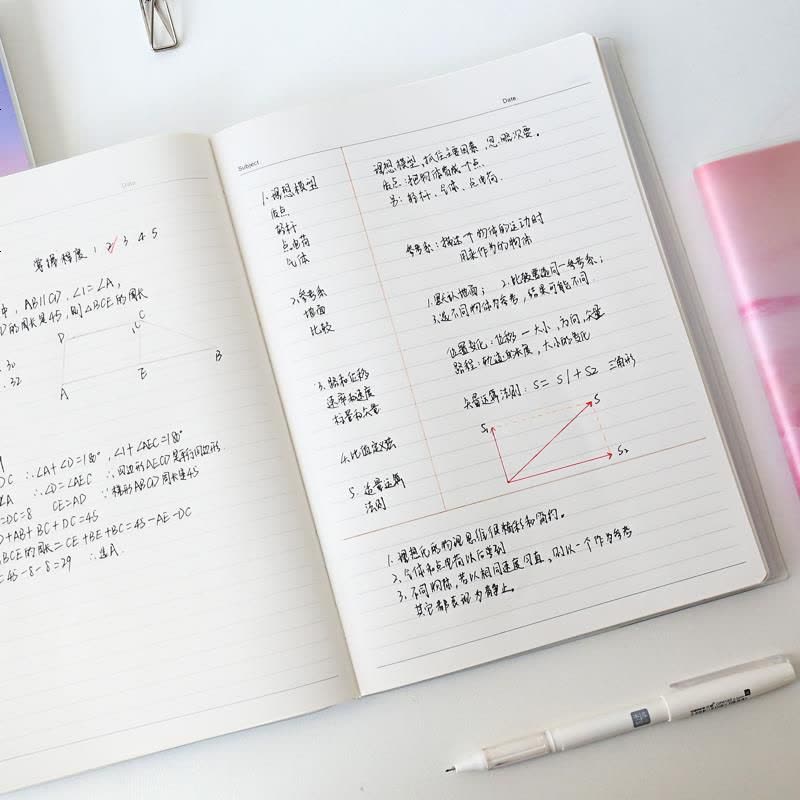 Date
掌握程度 1 2 3 4 5
中, AB∥CD, ∠1=∠A,
D的周长是45, 则△BCE的周长
30
32
D
C
A
E
B
DC ∴∠A+∠D=180° ∠1+∠AEC=180°
∠A ∴∠D=∠AEC ∴四边形AECD是平行四边形
=DC=8 CE=AD ∵梯形ABCD周长是45
D+AB+BC+DC=45
BCE的周长=CE+BE+BC=45-AE-DC
=45-8-8=29 ∴选A.
Subject:
Date
1.理想模型
质点
轻杆
点电荷
气体
2.参考系
地面
比较
3.路和位移
速率和速度
标量和矢量
4.比值定义法
5.矢量运算
法则
理想模型,抓住主要因素,忽略次要。
质点:把物体看成一个点
轻杆、气体、点电荷.
参考系:描述一个物体的运动时
用来作为的物体
1.默认地面; 2.比较要选同一参考系;
3.选不同物体为参考,结果可能不同
位置变化:位移—大小,方向,矢量
路程:轨迹的长度,大小的变化
矢量运算法则: S=S1+S2 三角形
S1
S
S2
1.理想化
2.气体和点电荷以后学到
3.不同物体,若以相同速度 则以一个作为参考
其它都表现为静止。